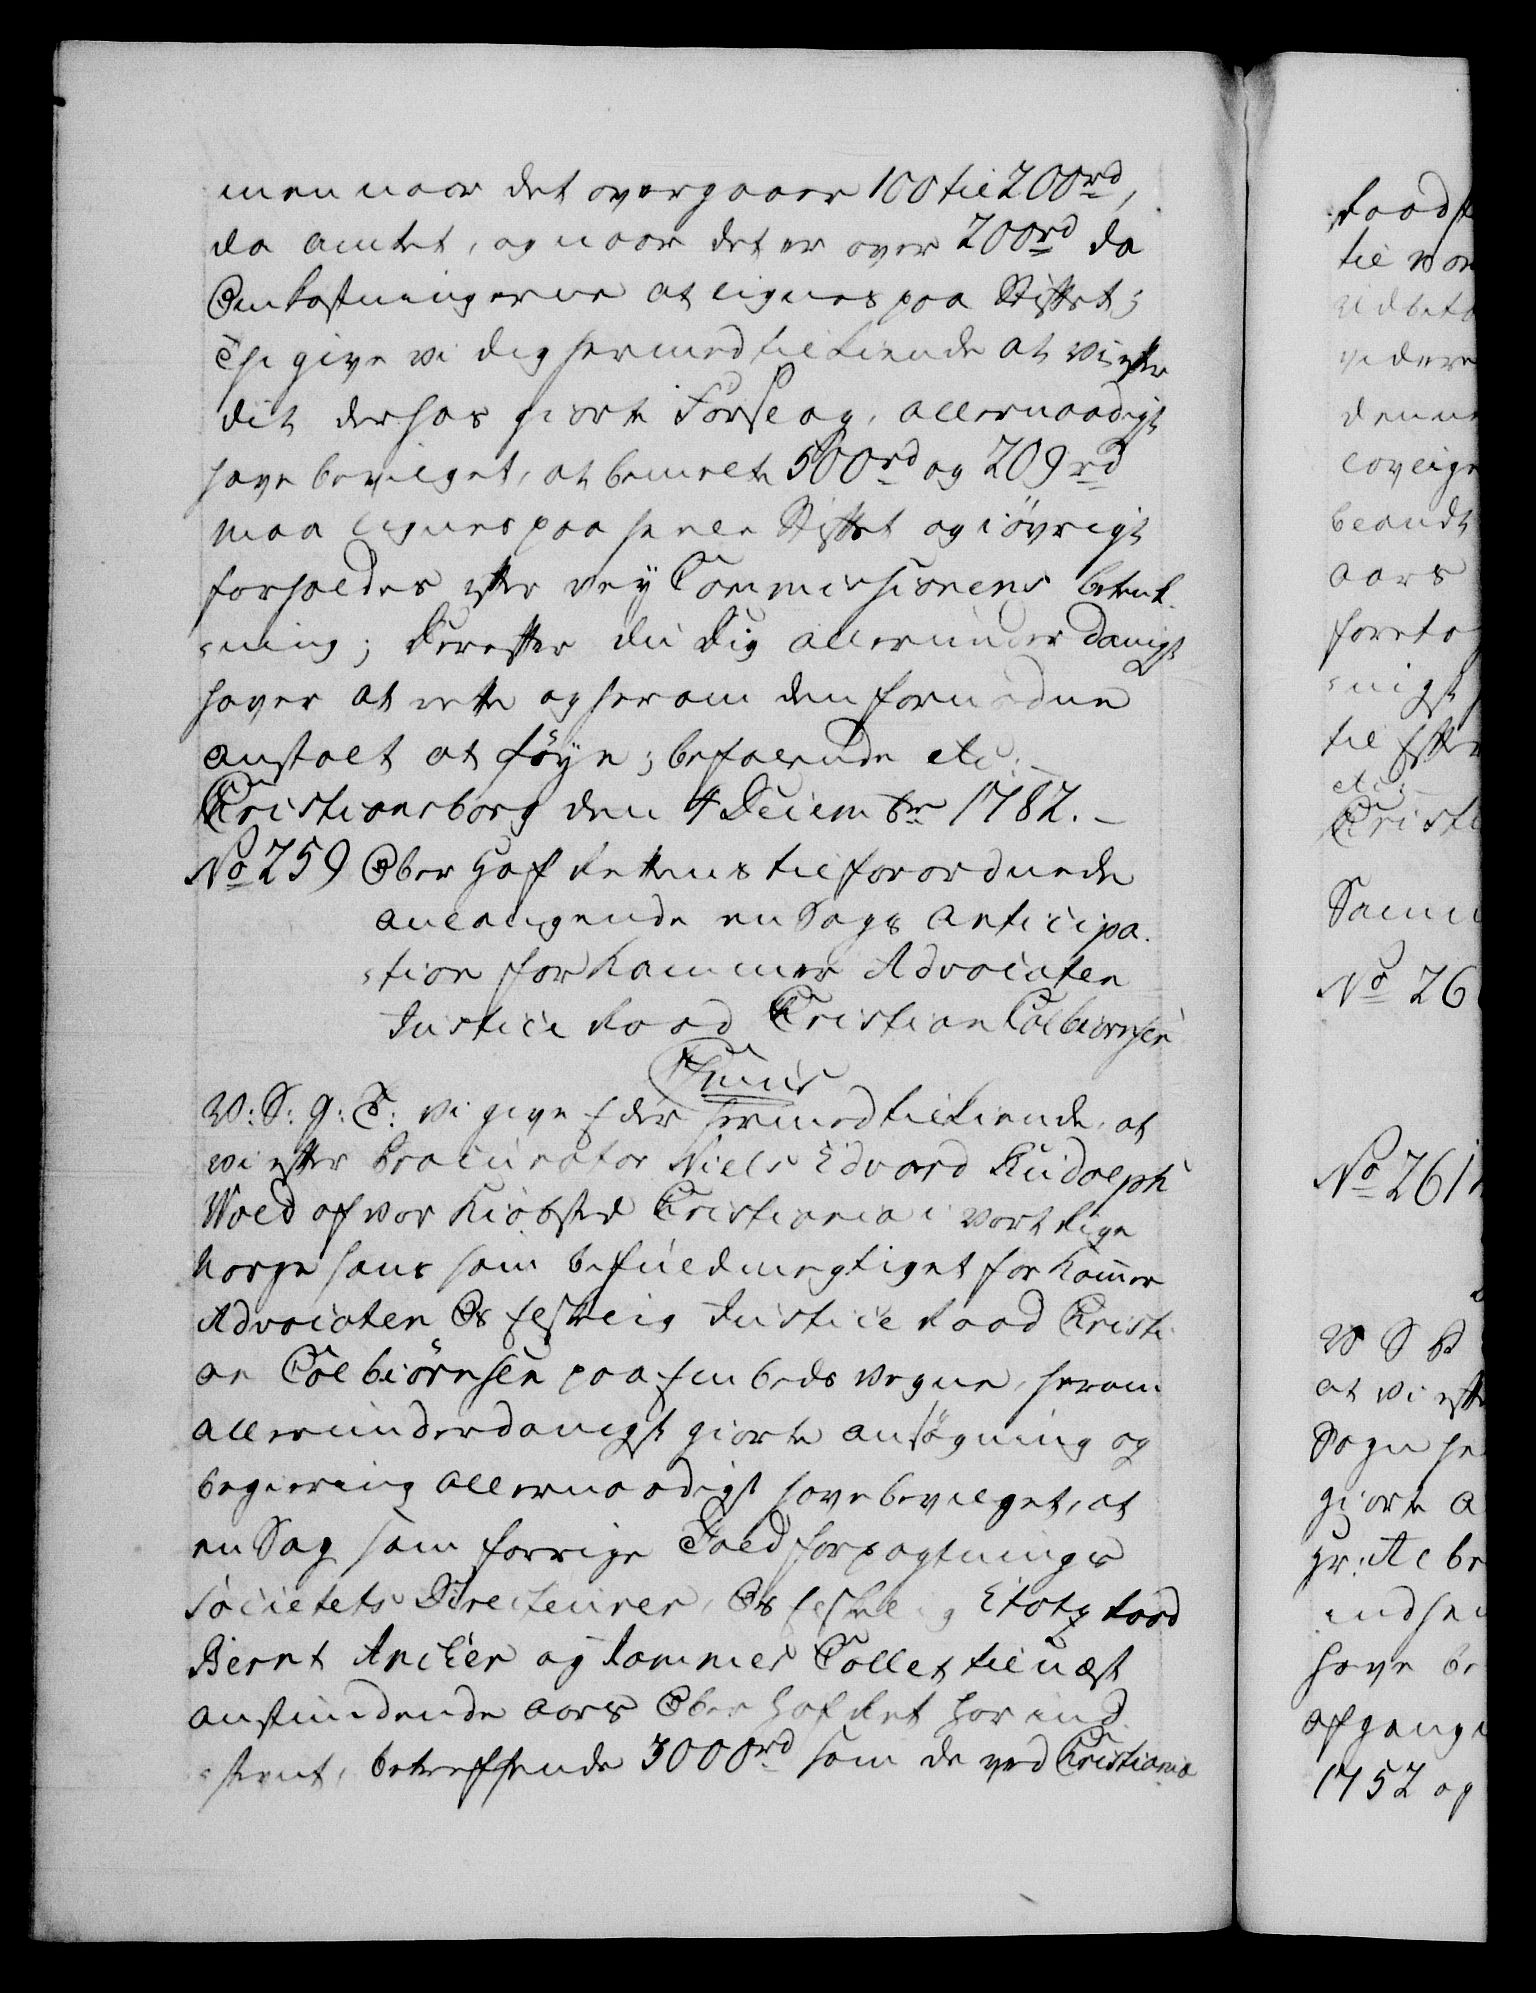 men naar det overgaaer 100 til 200 rd,
da amtet, og naar det er over 200 rd da
Omkostningerne at lignes paa Stiftet;
Thi give vi dig hermed tilkiende at vi efter
dit derhos giorte Forslag, allernaadigst
have bevilget, at bemelte 500 rd og 209 rd
maa lignes paa heele Stiftet og i øvrigt
forholdes efter vey Commissionens betænk-
-ning; Derefter du dig allerunderdanigst
haver at rette og herom den fornødne
anstalt at føye; befalende etc:
Cristiansborg den 4 Decembr 1782.
No 259 Over Hof Rettens tilforordnede
anlangende en Sags anticipa-
-tion for Kammer Advocaten
Justice Raad Cristian Colbiørnsen
W: S: G: T: vi give Eder hermed tilkiende, at
vi efter Procurator Niels Edvard Rudolph
Wold af vor Kiøbsted Cristiania i vort Rige
Norge hans som befuldmegtiget for Kammer
Advocaten Os Elskelig Justice Raad Cristi-
an Colbiørnsen paa Embeds vegne, herom
allerunderdanigst giorte ansøgning og
begiering allernaadigst have bevilget, at
en Sag som forrige Toldforpagtnings
Societets Directeurer, Os Elskelig Etatz Raad
Bernt Ancker og Kammer Collet til næst
anstundende aars Over Hof Ret har ind-
-stevnt, betreffende 3000 rd som de ved Cristiania
Raads
til vor
Udbeta
videre
denne
lovlige
beandt
aars
foretag
-nigst
til Efter
etc:
Cristi
Samm
No 26
No 261
W S G
at vi efter
Sogn he
giorte a
gr: At be
indsen
have be
afgangn
1752 og